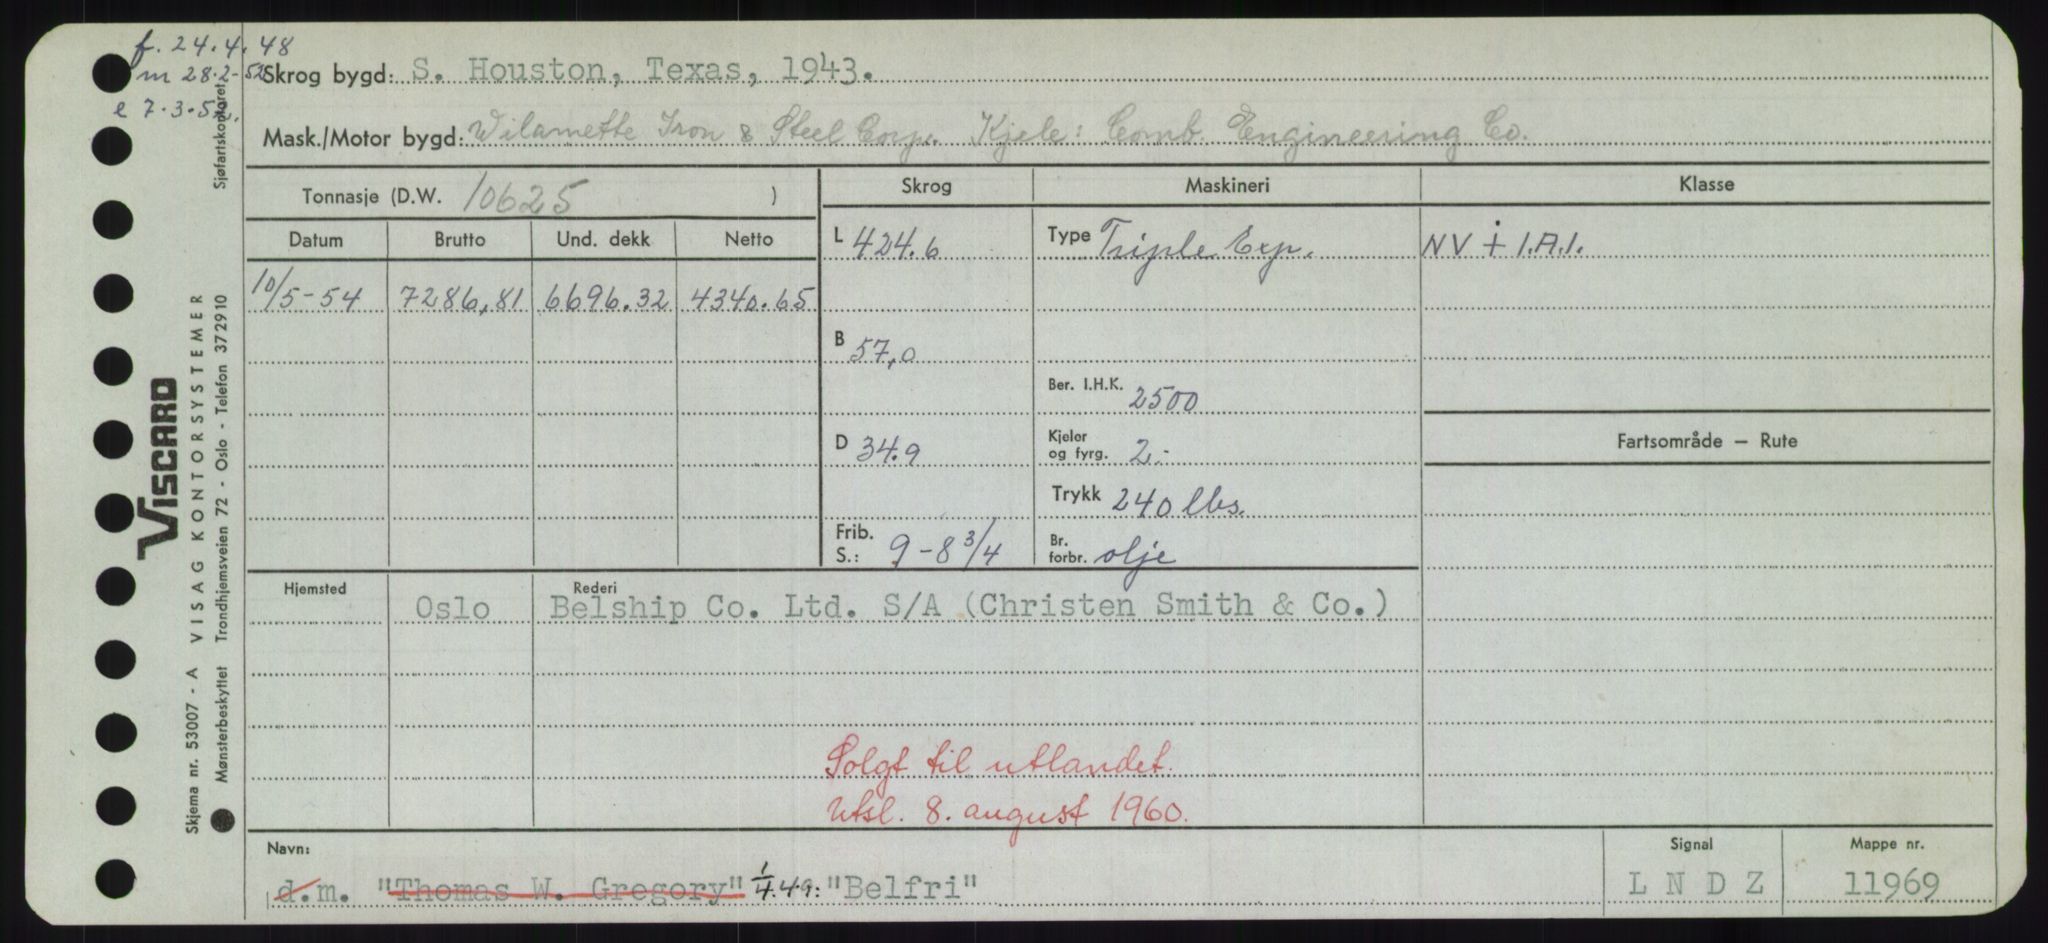 f. 24.4.48
m 28.2-52
e 7.3.52.
Skrog bygd: S. Houston, Texas, 1943.
Mask./Motor bygd: Wilamette Iron & Steel Corp. Kjele: Comb. Engineering Co.
Tonnasje (D.W. 10625 )
Skrog Maskineri Klasse
Datum Brutto Und. dekk Netto
L 424.6 Type Triple Exp. NV + 1.A.1.
10/5-54 7286,81 6696.32 4340.65
B 57,0
Ber. I.H.K. 2500
D 34.9 Kjeler og fyrg. 2.-
Fartsområde — Rute
Trykk 240 lbs.
Frib. S.: 9-8 3/4 Br. forbr. olje
Hjemsted Rederi
Oslo Belship Co. Ltd. S/A (Christen Smith & Co.)
Solgt til utlandet.
Utsl. 8. august 1960.
Navn: Signal Mappe nr.
d.m. "Thomas W. Gregory" 1/4.49: "Belfri" L N D Z 11969
Skjema nr. 53007 - A VISAG KONTORSYSTEMER
Mønsterbeskyttet Trondhjemsveien 72 - Oslo - Telefon 372910
Sjøfartskontoret
VISCARD